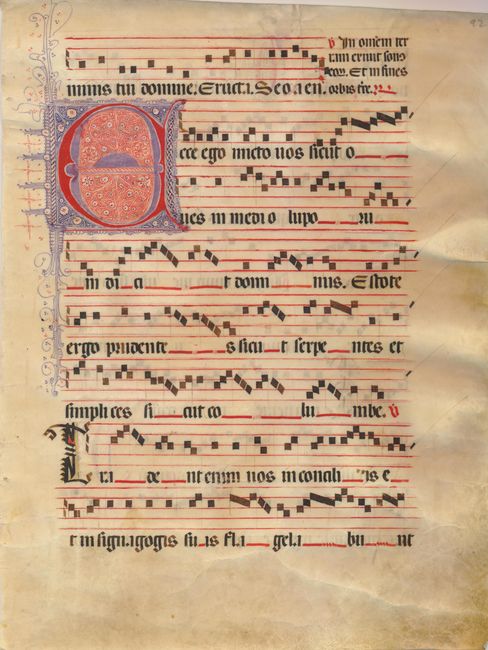 ℣ In omnem ter
ram exivit sonus
eorum. Et in fines
orbis terre.
nimis tui domine. Eructa. Seo. a en.
Ecce ego micto vos sicut o
ves in medi o lupo ru
m di ci t domi nus. Estote
ergo prudente s sicu t serpe ntes et
simplices si cut co lu mbe. ℣
Tra de nt enim vos in concili is e
t in sign.agogis su.is fl.a gel.a bu nt
92